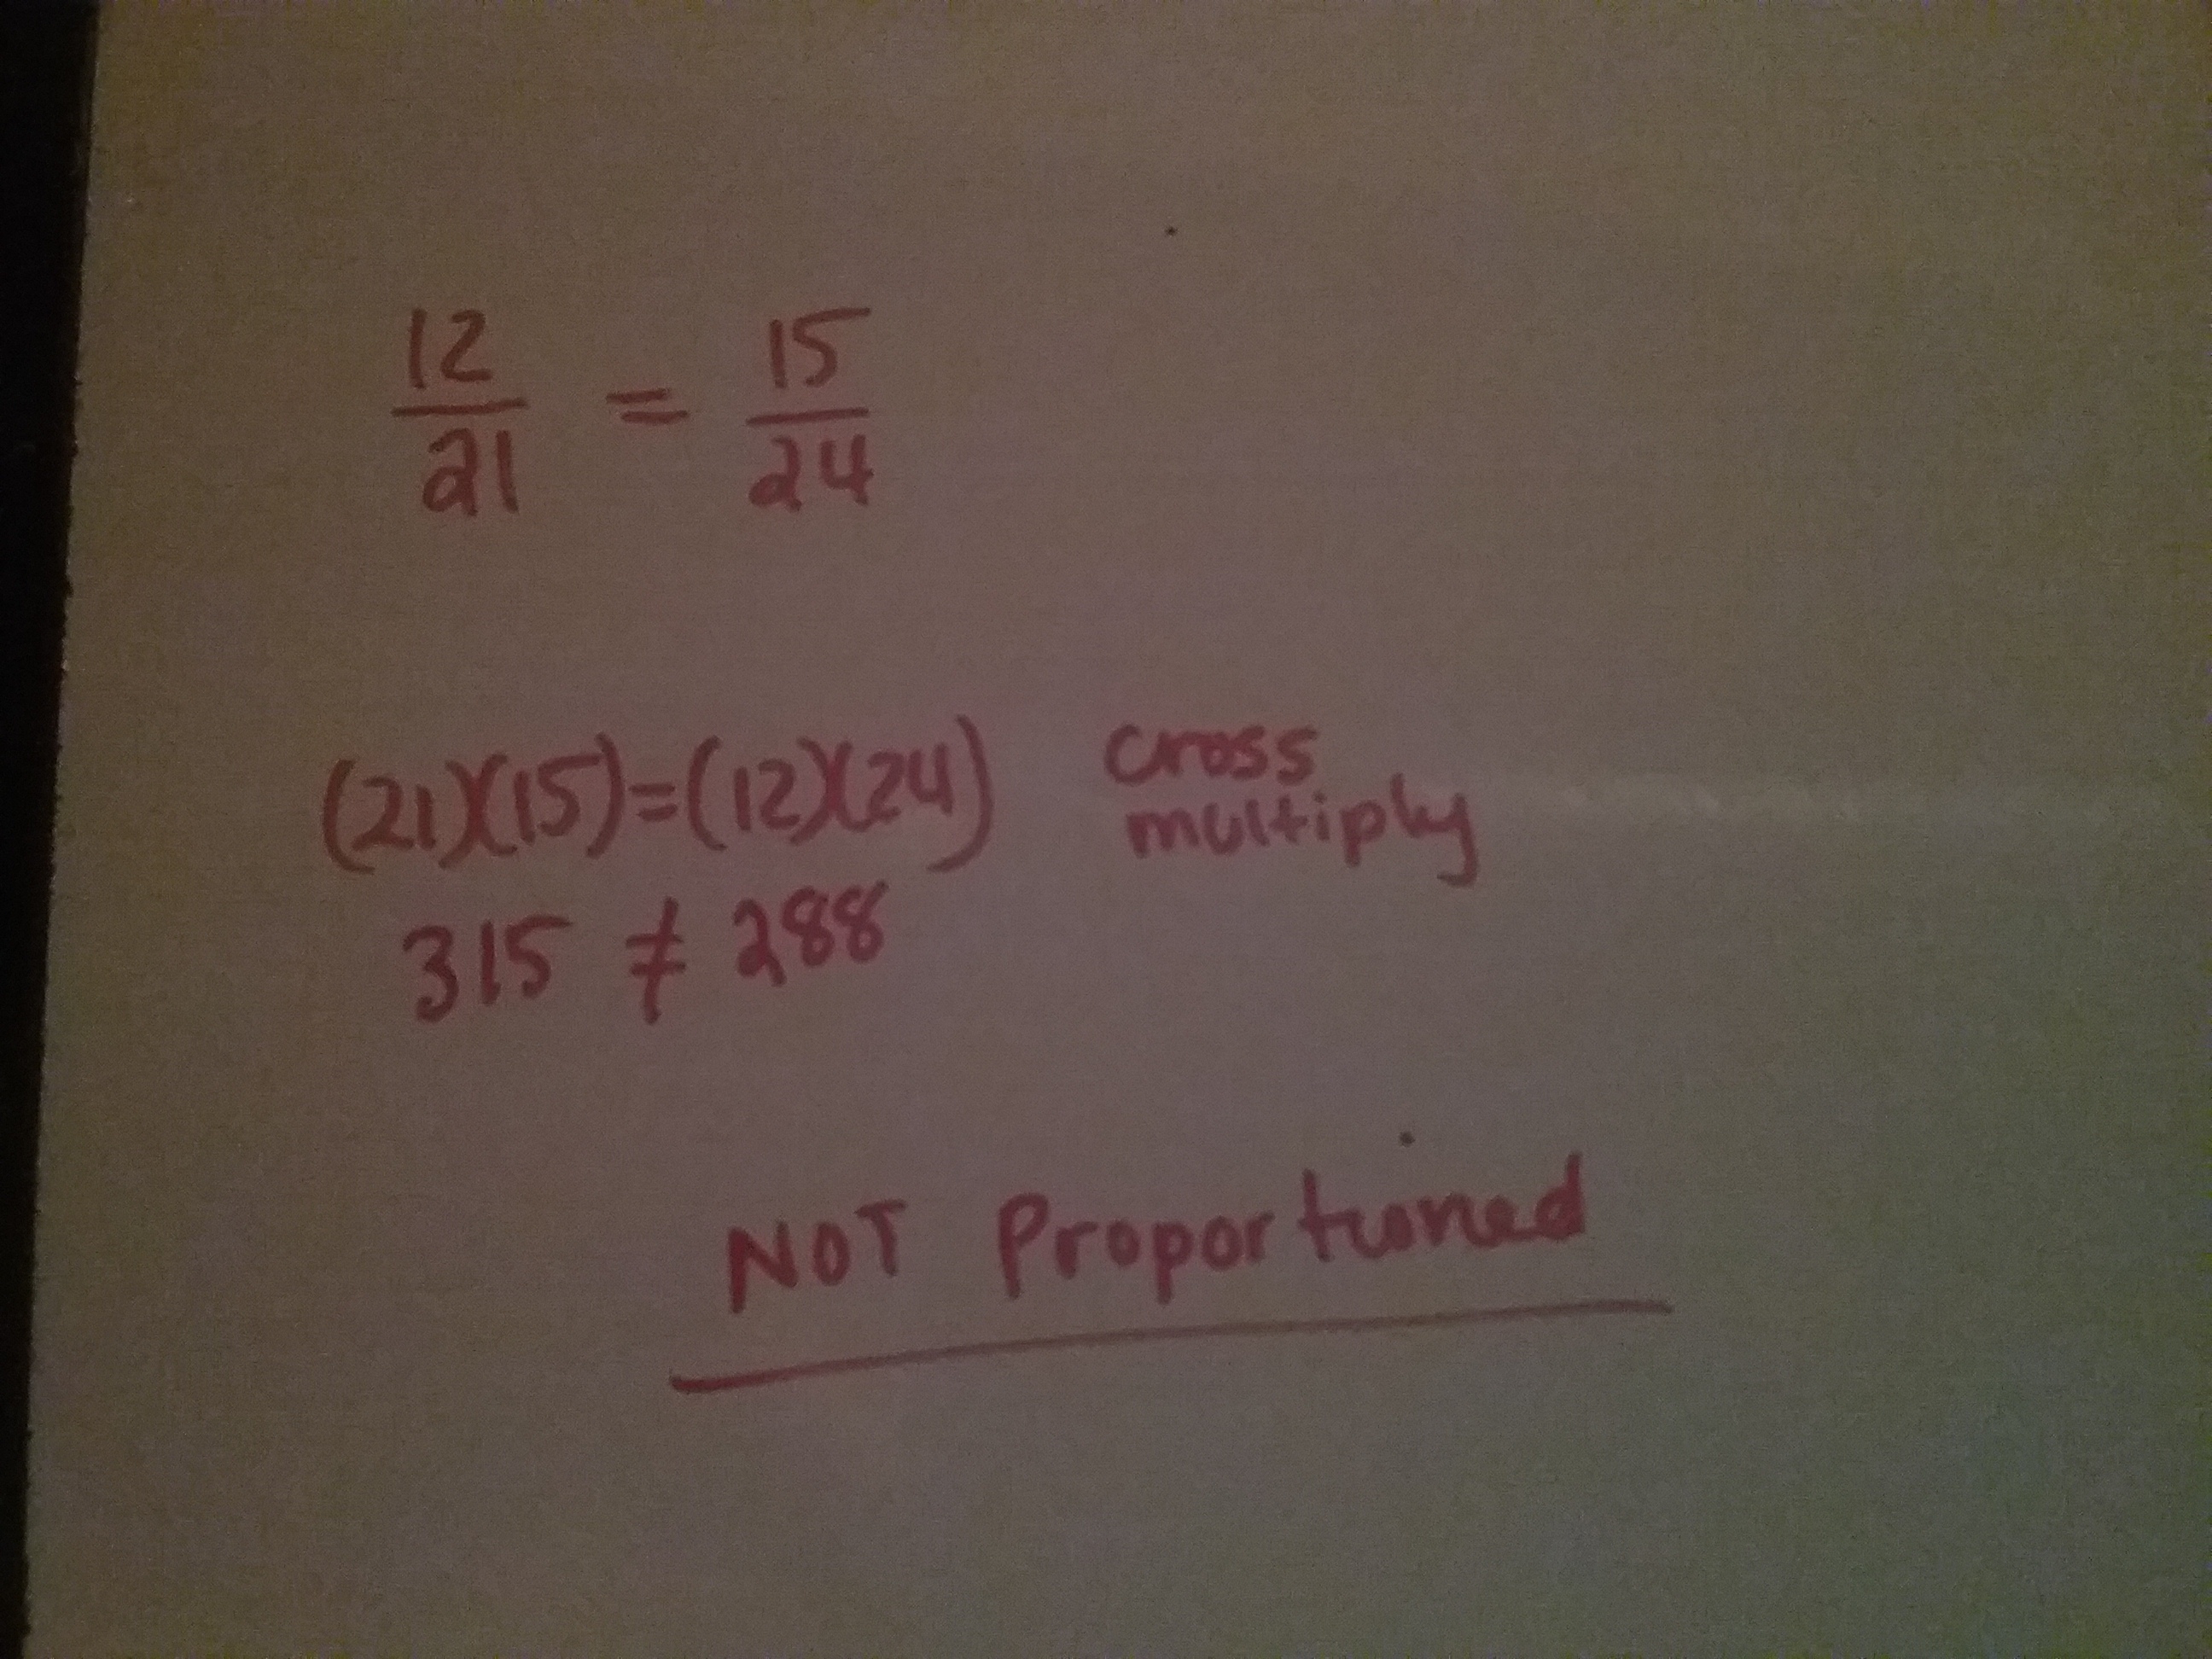 12/21 = 15/24
(21)(15)=(12)(24) cross multiply
315 ≠ 288
NOT Proportioned